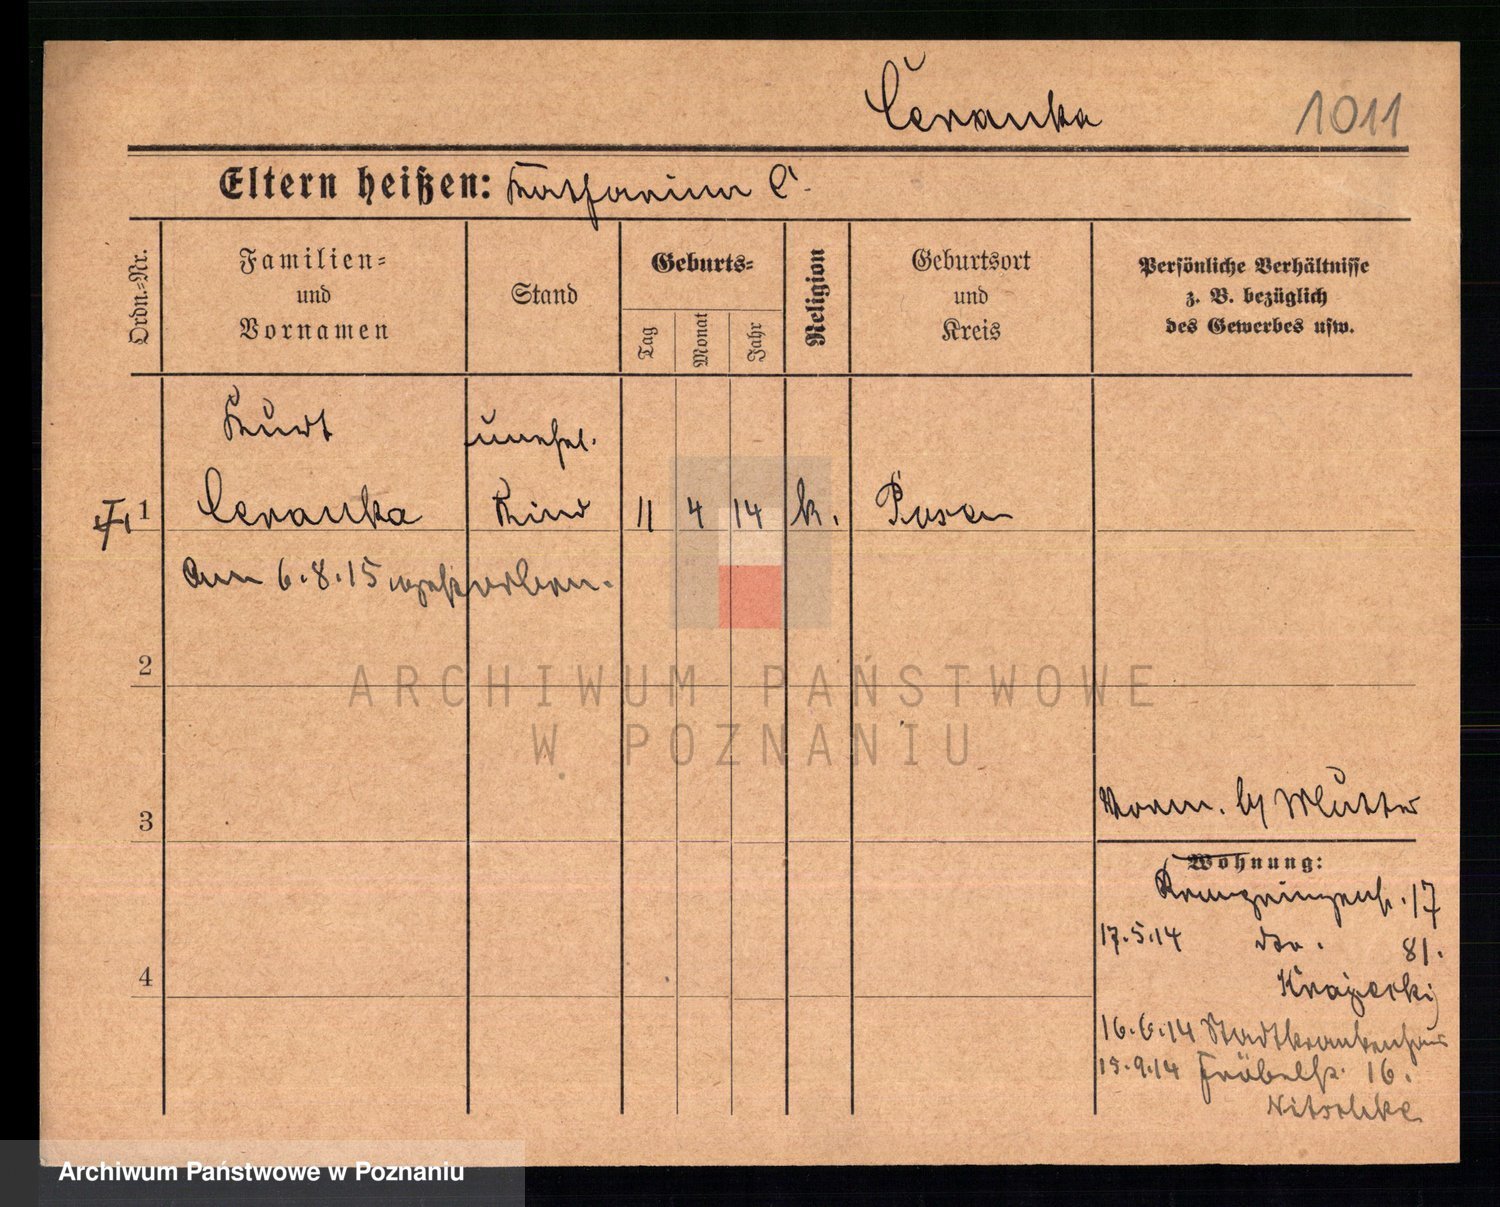 Ceranka
1011
Eltern heißen: Katharina C.
Ordn.-Nr.
Familien-
und
Vornamen
Stand
Geburts-
Tag
Monat
Jahr
Religion
Geburtsort
und
Kreis
Persönliche Verhältnisse
z. B. bezüglich
des Gewerbes usw.
Kurt unehel.
1 Ceranka Kind 11 4 14 k. Posen
Am 6.8.15 gestorben.
2
ARCHIWUM PAŃSTWOWE
W POZNANIU
3
Mutter
Wohnung:
17
17.5.14 dto. 81.
4
16.6.14 Stadtkrankenhaus
15.9.14 Fröbelstr. 16.
Nitschke
Archiwum Państwowe w Poznaniu